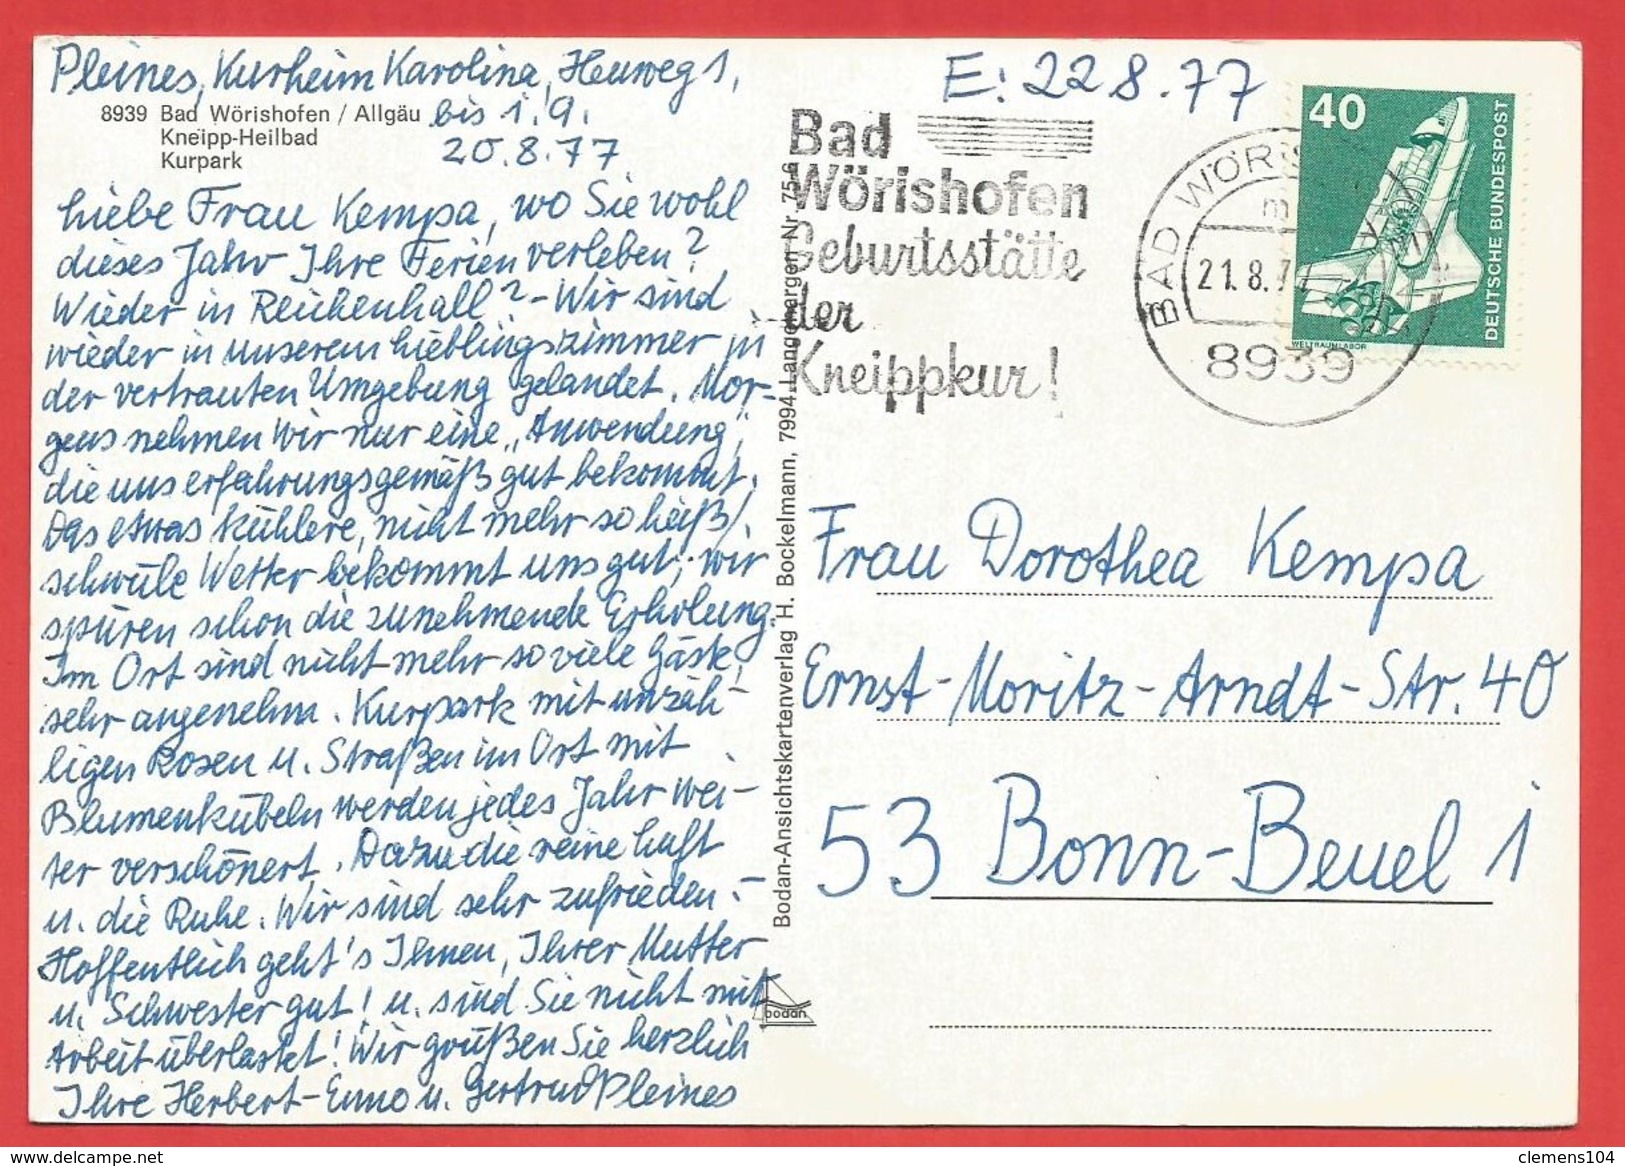 Pleines, Kurheim Karolina, Heuweg 1,
8939 Bad Wörishofen / Allgäu bis 1.9.
Kneipp-Heilbad
Kurpark
20.8.77
Liebe Frau Kempa, wo Sie wohl
dieses Jahr Ihre Ferien verleben?
Wieder in Reichenhall? - Wir sind
wieder in unserem Lieblingszimmer in
der vertrauten Umgebung gelandet. Mor-
gens nehmen wir nur eine „Anwendung",
die uns erfahrungsgemäß gut bekommt.
Das etwas kühlere, nicht mehr so heiß/
schwüle Wetter bekommt uns gut; wir
spüren schon die zunehmende Erholung.
Im Ort sind nicht mehr so viele Gäste,
sehr angenehm. Kurpark mit unzäh-
ligen Rosen u. Straßen im Ort mit
Blumenkübeln werden jedes Jahr wei-
ter verschönert. Dazu die reine Luft
u. die Ruhe. Wir sind sehr zufrieden. -
Hoffentlich geht's Ihnen, Ihrer Mutter
u. Schwester gut! u. sind Sie nicht mit
Arbeit überlastet! Wir grüßen Sie herzlich
Ihre Herbert-Enno u. Gertrud Pleines
Bodan-Ansichtskartenverlag H. Bockelmann, 7994 Langenargen Nr. 75-6
bodan
E: 22 8.77
Bad
Wörishofen
Geburtsstätte
der
Kneippkur!
BAD WÖRIS
m
21.8.77
8939
40
DEUTSCHE BUNDESPOST
WELTRAUMLABOR
Frau Dorothea Kempa
Ernst-Moritz-Arndt-Str. 40
53 Bonn-Beuel 1
delcampe.net
clemens104